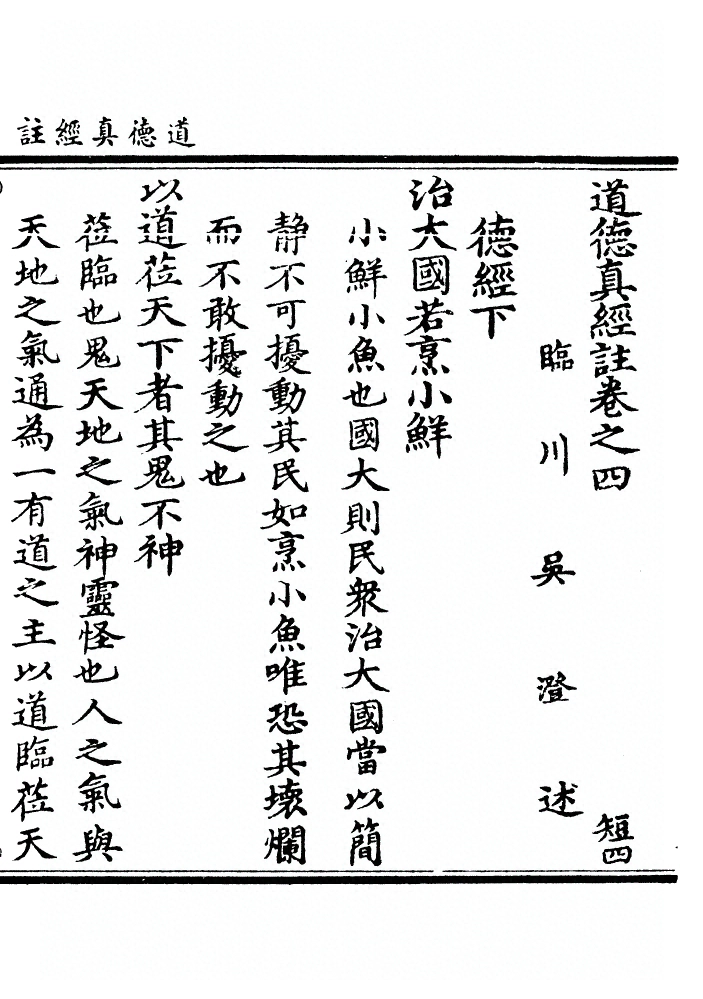 道德真經註
道德真經註卷之四 短四
臨川吳澄述
德經下
治大國若烹小鮮
小鮮小魚也國大則民衆治大國當以簡
靜不可擾動其民如烹小魚唯恐其壞爛
而不敢擾動之也
以道莅天下者其鬼不神
莅臨也鬼天地之氣神靈怪也人之氣與
天地之氣通為一有道之主以道臨莅天